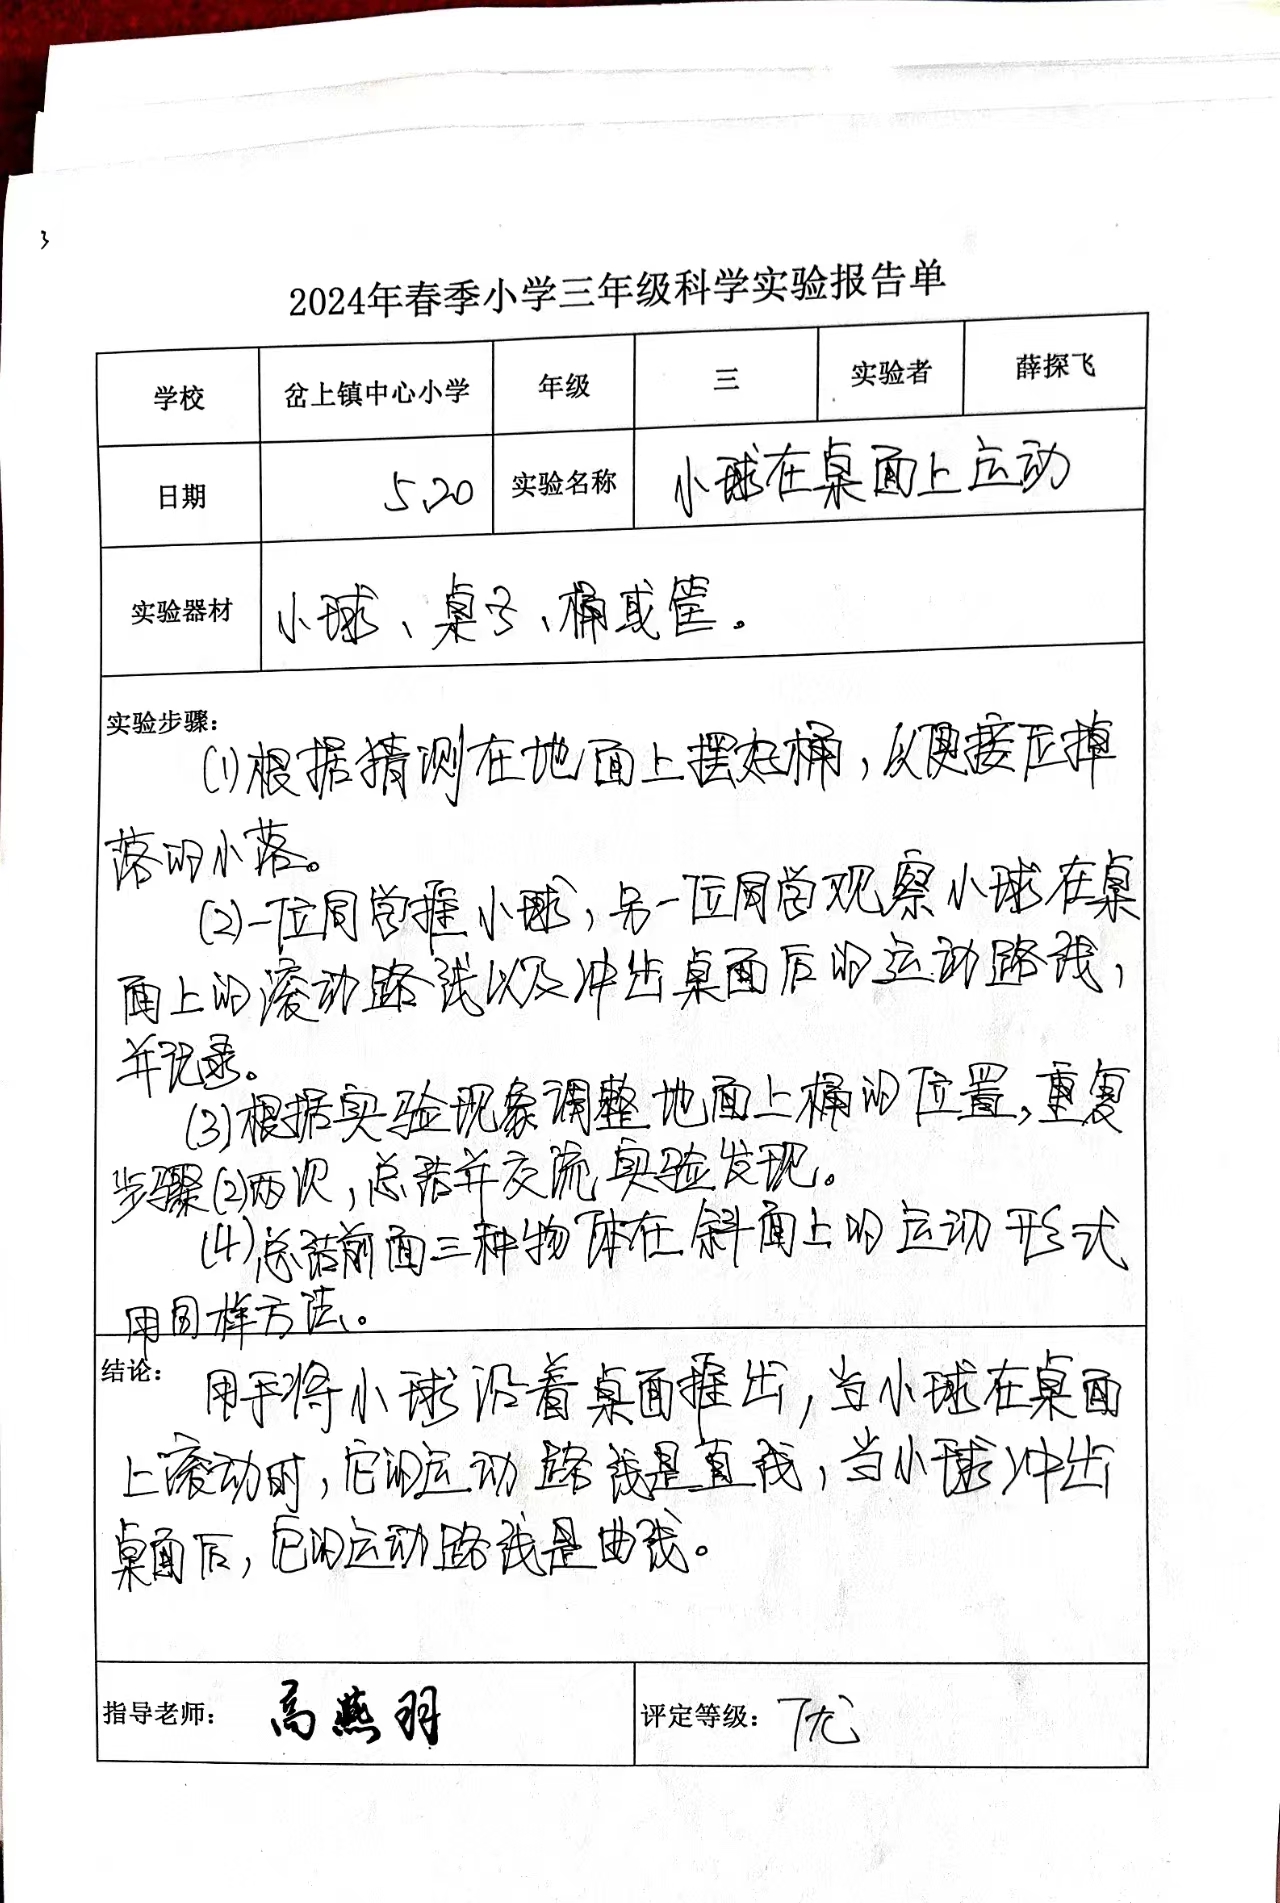 3
2024年春季小学三年级科学实验报告单
学校 岔上镇中心小学 年级 三 实验者 薛探飞
日期 5.20 实验名称 小球在桌面上运动
实验器材 小球、桌子、桶或筐。
实验步骤:
(1)根据猜测在地面上摆好桶，以便接应掉
落的小落。
(2)一位同学推小球，另一位同学观察小球在桌
面上的滚动路线以及冲出桌面后的运动路线，
并记录。
(3)根据实验现象调整地面上桶的位置，重复
步骤(2)两次，总结并交流实验发现。
(4)总结前面三种物体在斜面上的运动形式
用同样方法。
结论: 用手将小球沿着桌面推出，当小球在桌面
上滚动时，它的运动路线是直线，当小球冲出
桌面后，它的运动路线是曲线。
指导老师: 高燕羽 评定等级: 优